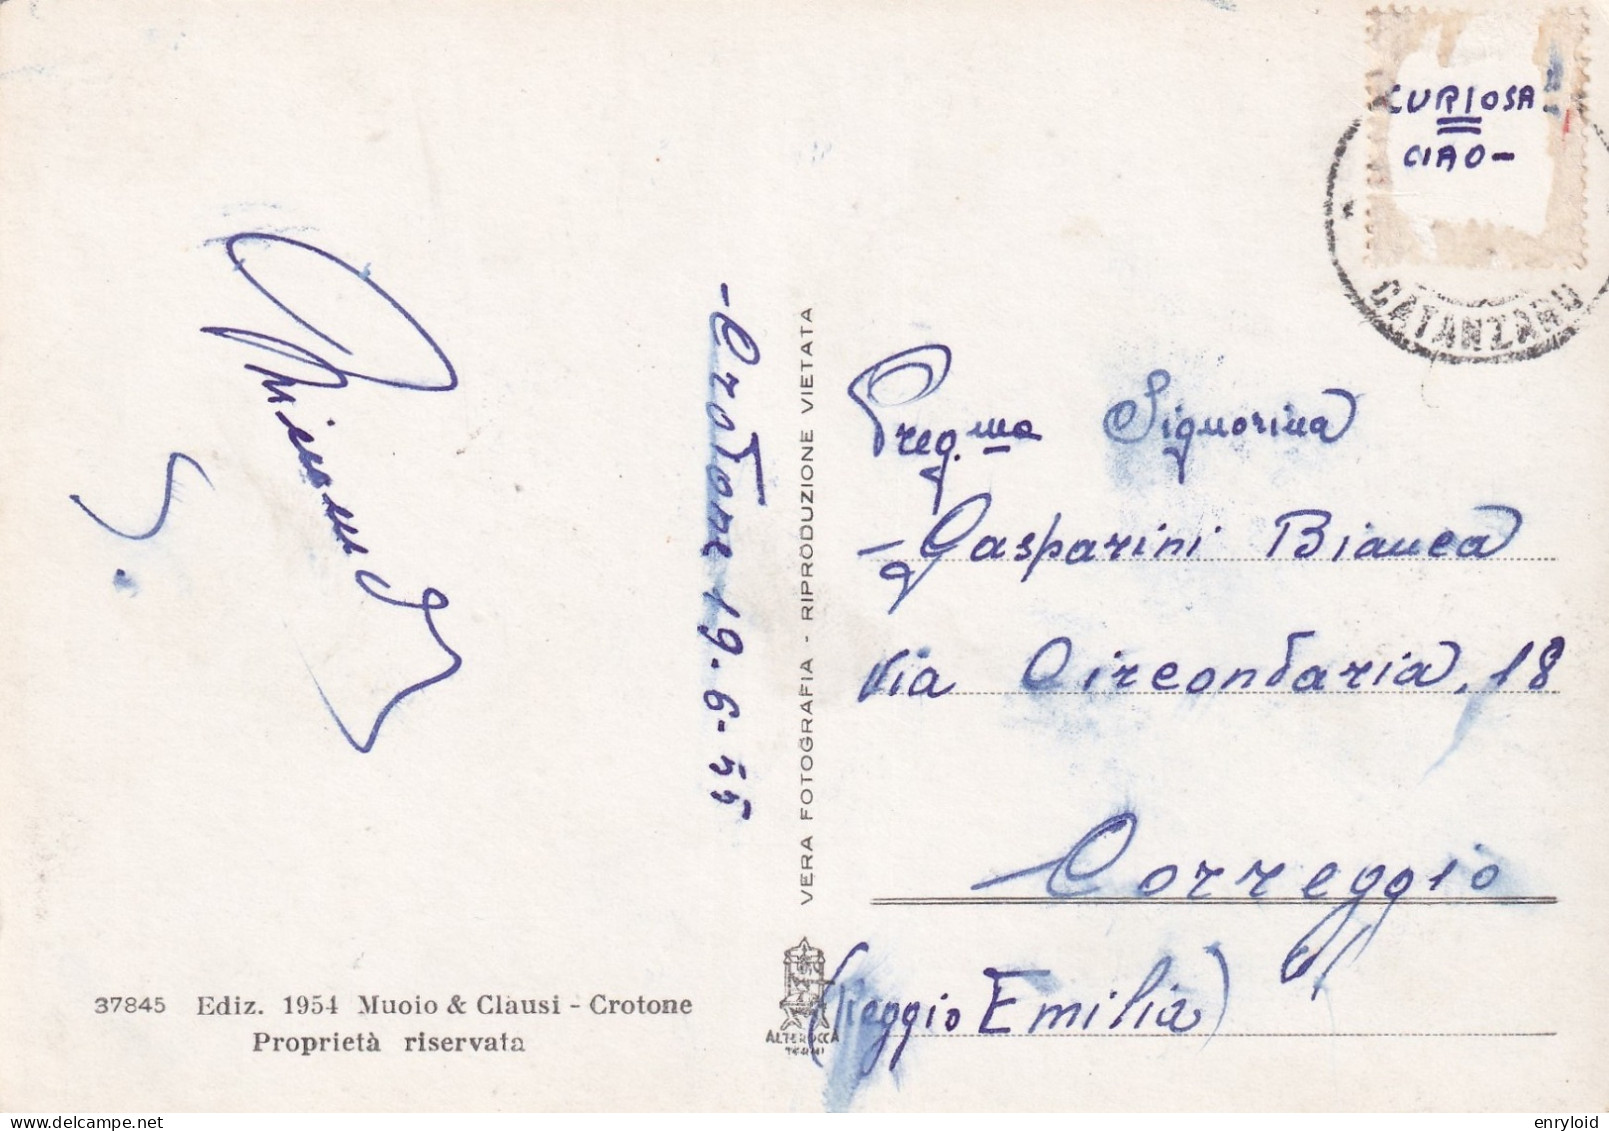 CURIOSA
CIAO-
CATANZARO
-Crotone 19-6-55
VERA FOTOGRAFIA - RIPRODUZIONE VIETATA
Preg.ma Signorina
-Gasparini Bianca
Via Circondaria, 18
Correggio
(Reggio Emilia)
37845 Ediz. 1954 Muoio & Clausi - Crotone
Proprietà riservata
ALTEROCCA
TERNI
enryloid